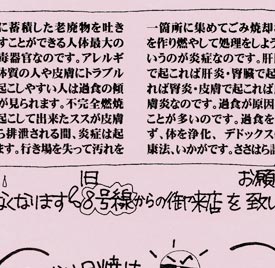 一箇所に集めてごみ焼却
を作り燃やして処理をしよう
いうのが炎症なのです。肝
で起これば肝炎・腎臓で起
れば腎炎・皮膚で起これば
膚炎なのです。過食が原因
ことが多いのです。過食を
ず、体を浄化、デドックス
康法、いかがです。ささらほ
に蓄積した老廃物を吐き
すことができる人体最大の
毒器官なのです。アレルギ
体質の人や皮膚にトラブル
起こしやすい人は過食の傾
が見られます。不完全燃焼
起こして出来たススが皮膚
ら排泄される間、炎症は起
ます。行き場を失って汚れを
旧 お願
なくなります 8号線からの御来店を致し